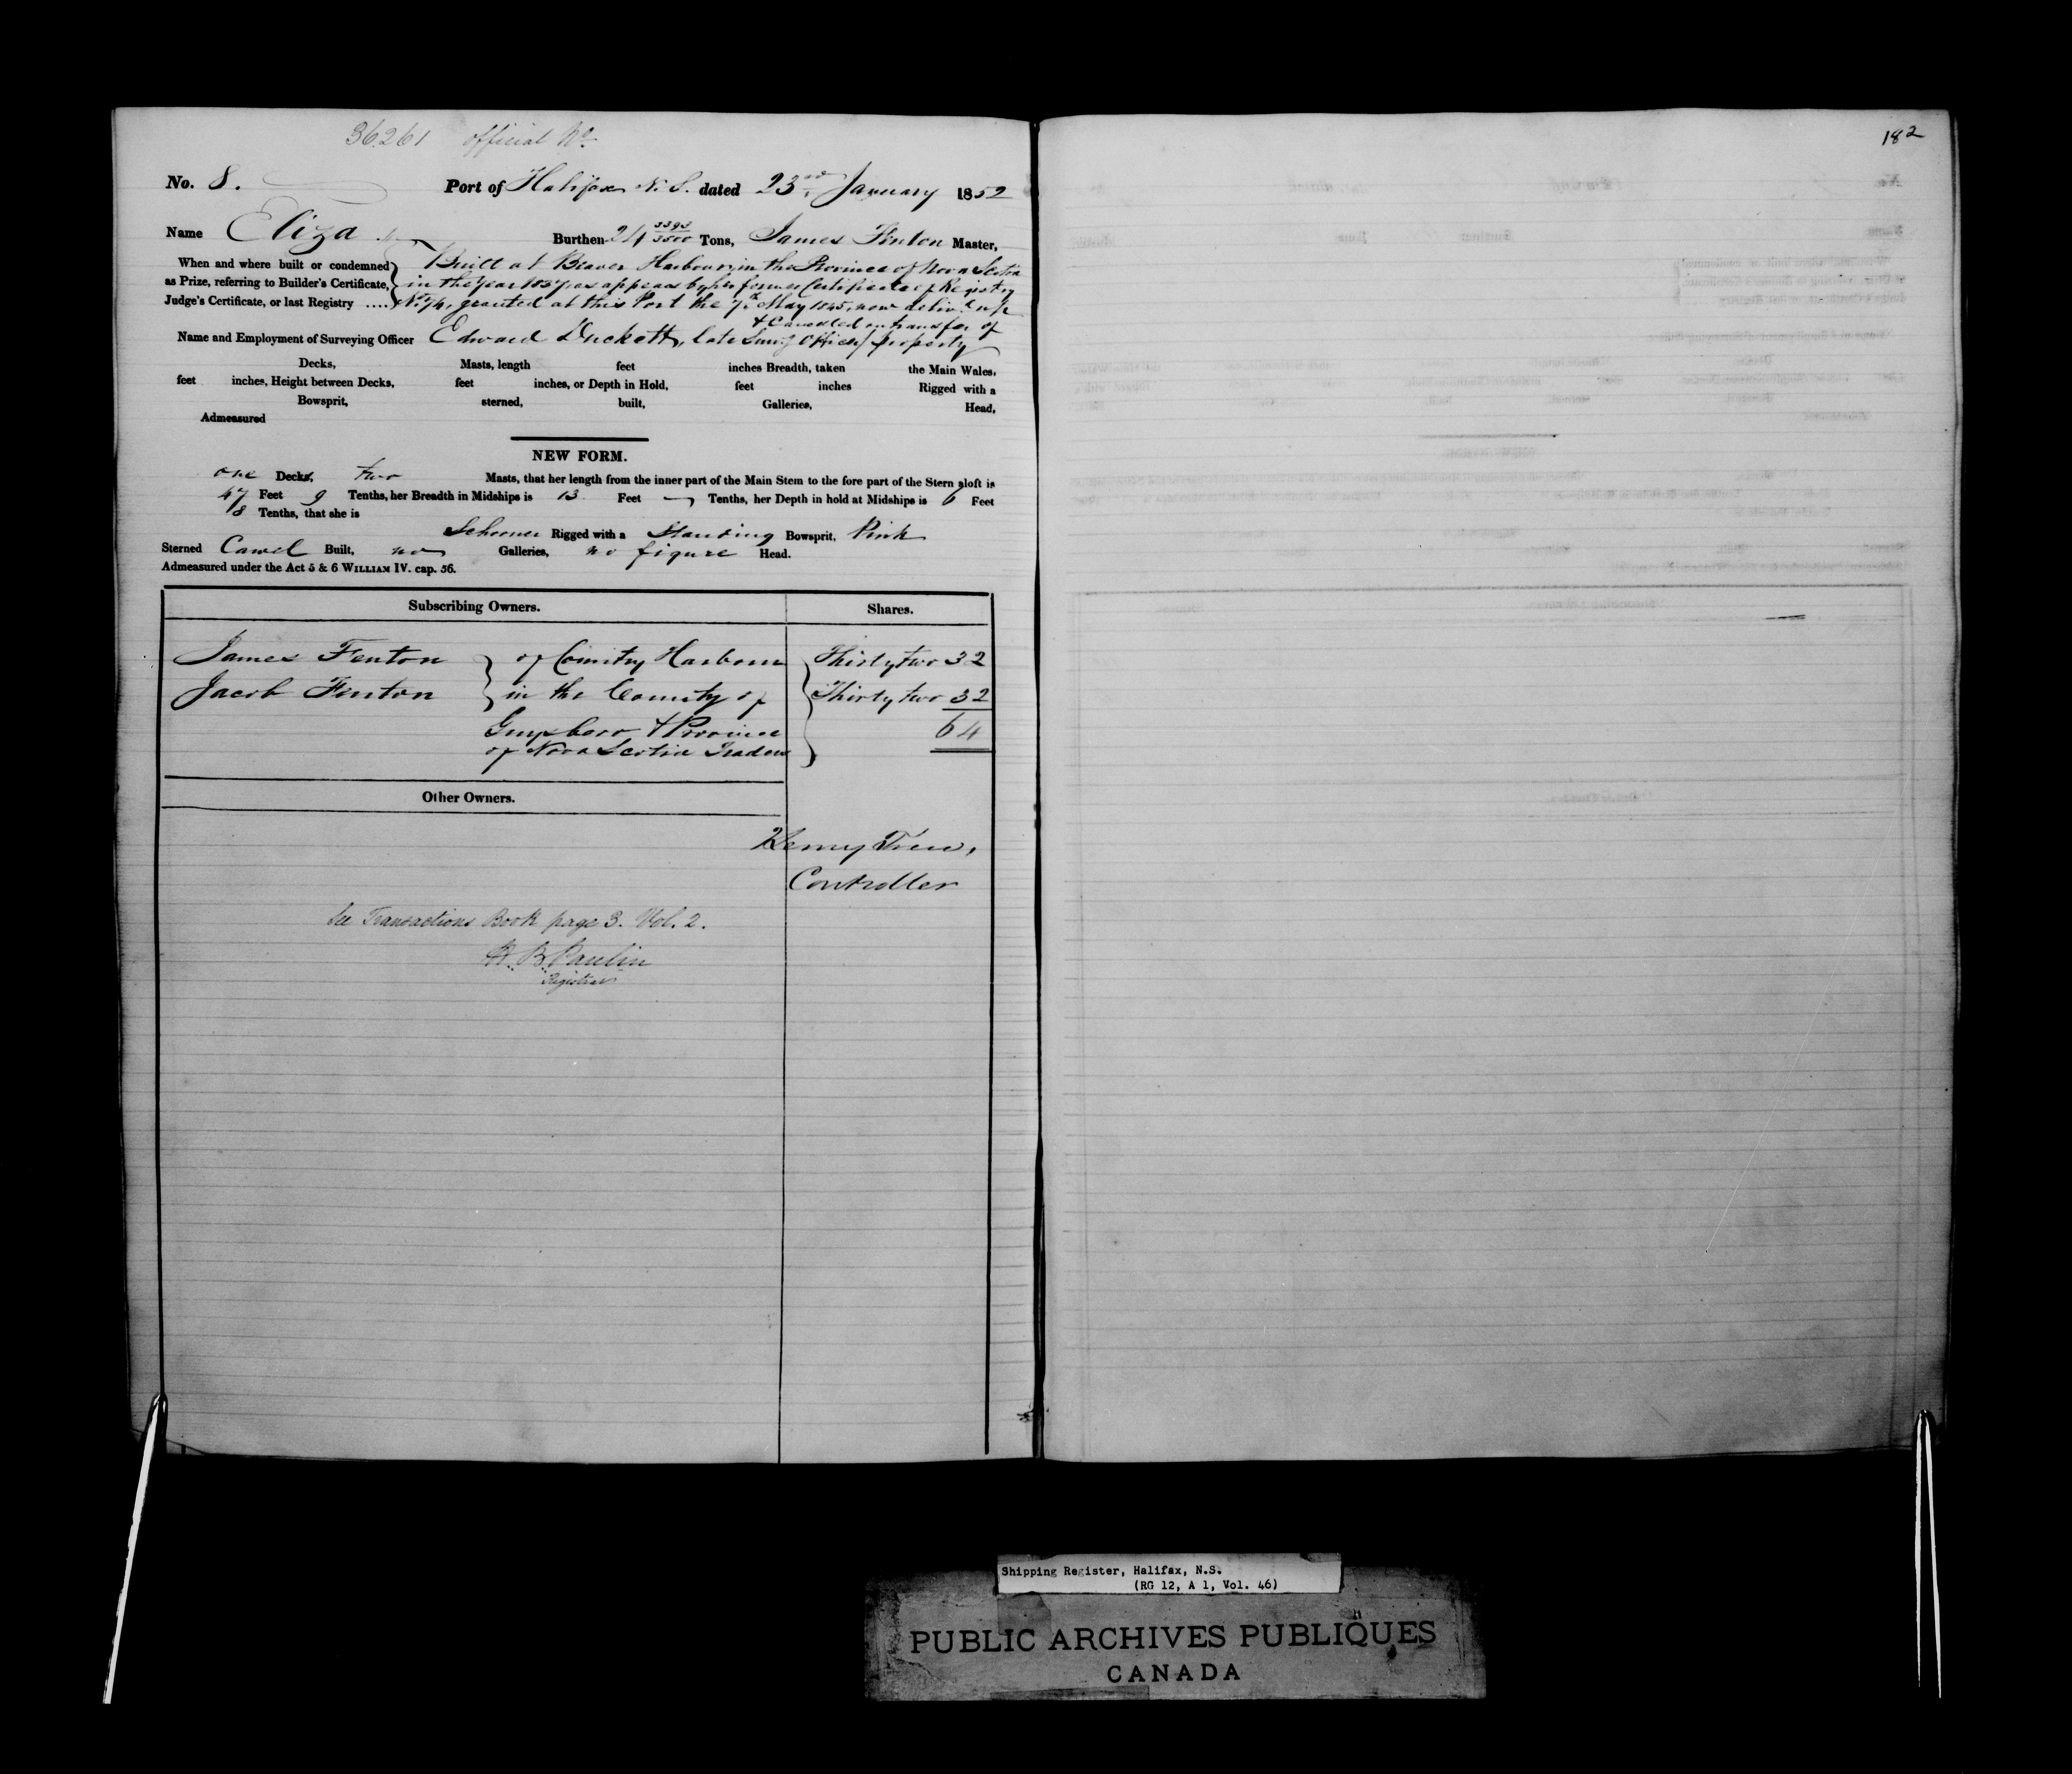 36261 official No.
No. 8. Port of Halifax N. S. dated 23rd January 1852
Name Eliza Burthen 24 3393/3500 Tons, James Fenton Master,
When and where built or condemned as Prize, referring to Builder's Certificate, Judge's Certificate, or last Registry ....
Built at Beaver Harbour, in the Province of Nova Scotia
in the Year as appears by her former Certificate of Registry
granted at this Port the 7th May 1845, now deliv.d up
& Cancelled on transfer of
Name and Employment of Surveying Officer Edward Duckett, late Surv.g Officer / property
Decks, Masts, length feet inches Breadth, taken the Main Wales,
feet inches, Height between Decks, feet inches, or Depth in Hold, feet inches Rigged with a
Bowsprit, sterned, built, Galleries, Head,
Admeasured
NEW FORM.
one Decks, two Masts, that her length from the inner part of the Main Stem to the fore part of the Stern aloft is
47 Feet 9 Tenths, her Breadth in Midships is 13 Feet — Tenths, her Depth in hold at Midships is 6 Feet
8 Tenths, that she is
Schooner Rigged with a Standing Bowsprit, Pink
Sterned Carvel Built, no Galleries, no figure Head.
Admeasured under the Act 5 & 6 WILLIAM IV. cap. 56.
Subscribing Owners. Shares.
James Fenton } of Country Harbour Thirty two 32
Jacob Fenton } in the County of Thirty two 32
Guysboro & Province 64
of Nova Scotia Traders
Other Owners.
Henry Trew,
Controller
See Transactions Book page 3. Vol. 2.
H. B. Paulin
Registrar
182
Shipping Register, Halifax, N.S.
(RG 12, A 1, Vol. 46)
PUBLIC ARCHIVES PUBLIQUES
CANADA